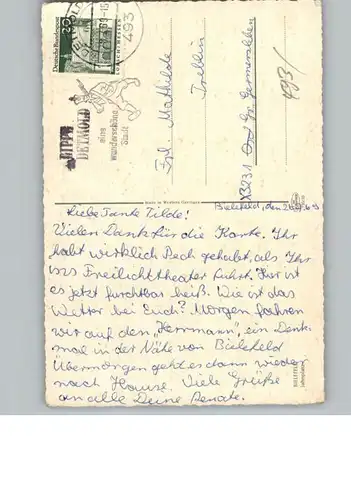 Deutsche Bundespost
493
LIPPE
DETMOLD
eine
wunderschöne
Stadt
Frl. Mathilde
Trebbin
493/
Made in Western Germany
Bielefeld, den
Liebe Tante Tilde!
Vielen Dank für die Karte. Ihr
habt wirklich Pech gehabt, als Ihr
ins Freilichttheater fuhrt. Hier ist
es jetzt furchtbar heiß. Wie ist das
Wetter bei Euch? Morgen fahren
wir auf den „Herrmann", ein Denk
mal in der Nähe von Bielefeld
Übermorgen geht es dann wieder
nach Hause. Viele Grüße
an alle Deine Renate.
BIELEFELD